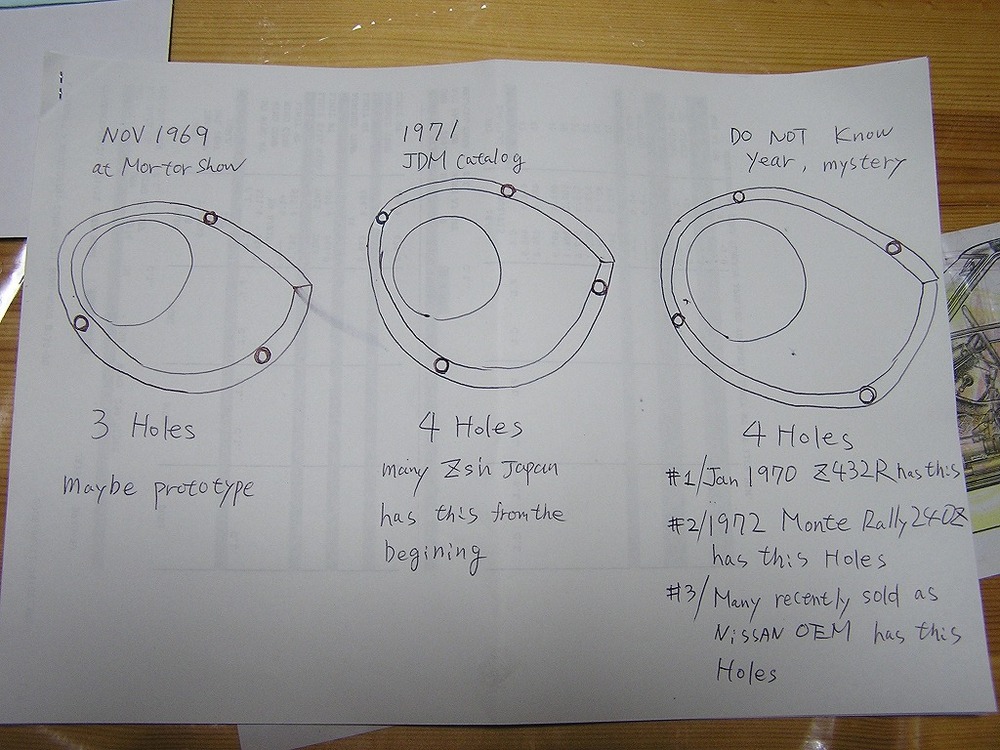 NOV 1969
at Mortor Show
3 Holes
maybe prototype
1971
JDM Catalog
4 Holes
many Zs in Japan
has this from the
begining
DO NOT Know
Year, mystery
4 Holes
#1/Jan 1970 Z432R has this
#2/1972 Monte Rally 240Z
has this Holes
#3/Many recently sold as
NiSSAN OEM has this
Holes